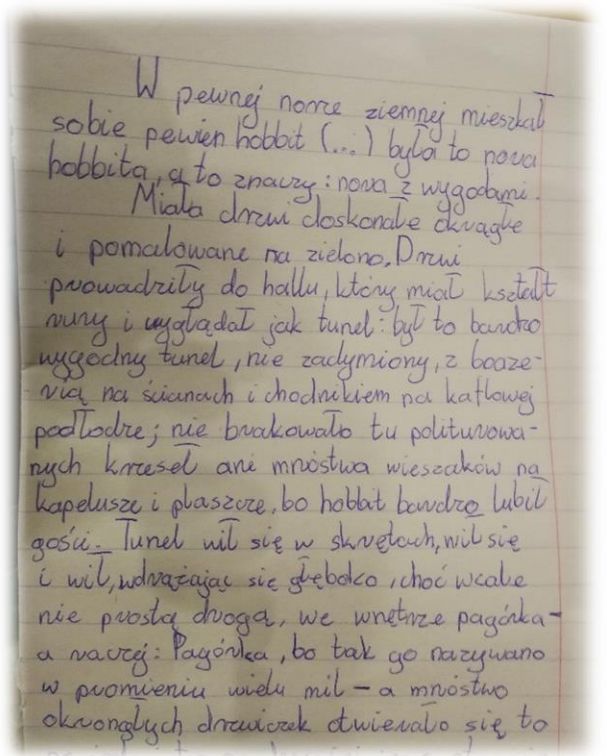 W pewnej norze ziemnej mieszkał
sobie pewien hobbit (...) była to nora
hobbita, a to znaczy: nora z wygodami.
Miała drzwi doskonałe okrągłe
i pomalowane na zielono. Drzwi
prowadziły do hallu, który miał kształt
rury i wyglądał jak tunel: był to bardzo
wygodny tunel, nie zadymiony, z boaze-
rią na ścianach i chodnikiem na kaflowej
podłodze; nie brakowało tu politurowa-
nych krzeseł ani mnóstwa wieszaków na
kapelusze i płaszcze, bo hobbit bardzo lubił
gości. Tunel wił się w skrętach, wił się
i wił, wdrążając się głęboko, choć wcale
nie prostą drogą, we wnętrze pagórka -
a raczej: Pagórka, bo tak go nazywano
w promieniu wielu mil - a mnóstwo
okronąłych drzwiczek otwierało się to